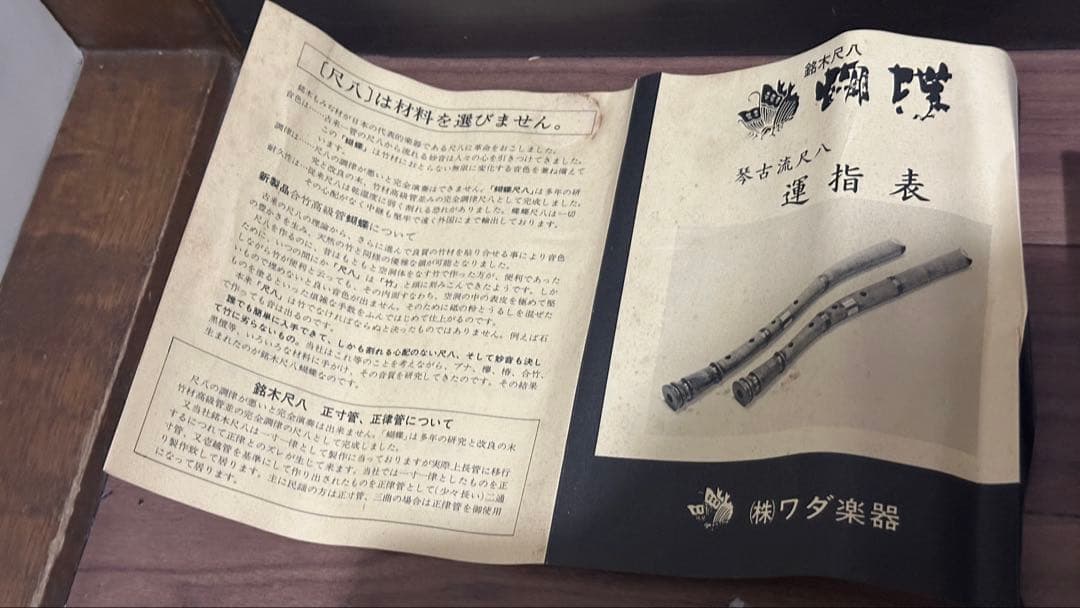 〔尺八〕は材料を選びません。
銘木もみな材が日本の代表的楽器である尺八に革命をおこしました。
音色は……古来一管の尺八から流れる妙音は人々の心を引きつけてきました。
この「蝴蝶」は竹材におとらない無限に変化する音色を兼ね備えて
います。
調律は……尺八の調律が悪いと完全演奏はできません。「蝴蝶尺八」は多年の研
究と改良の末、竹材高級管並みの完全調律尺八として完成しました。
耐久性は…従来尺八は乾湿度に弱く割れる恐れがありました。蝴蝶尺八は一切
その心配がなく中継も堅牢で遠く外国にまで輸出しております。
新製品合竹高級管蝴蝶について
古来の尺八の理論から、さらに進んで良質の竹材を貼り合せる事により音色
の豊かさを生み、天然の竹と同様の優雅な調が可能となりました。
尺八を作るのに、昔はもともと空洞体をなす竹で作った方が、便利であった
ために、いつの間にか「尺八」は「竹」と頭に刻みこんできたようです。しか
しながら竹が便利と云っても、その内面すなわち、空洞の中の表皮を極めて堅
いもので埋めないと良い音色が出ません。そのために砥の粉とうるしを混ぜた
ものを塗るといった煩雑な手数をふんではじめて仕上がるのです。
本来「尺八」は竹でなければならぬと決ったものではありません。例えば石
で作っても音は出るのです。
誰でも簡単に入手できて、しかも割れる心配のない尺八、そして妙音も決し
て竹に劣らないもの。当社はこれ等のことを考えながら、ブナ、樱、椿、合竹、
黒檀等、いろいろな材料に手がけ、その音質を研究してきたのです。その結果
生まれたのが銘木尺八蝴蝶なのです。
銘木尺八 正寸管、正律管について
尺八の調律が悪いと完全演奏は出来ません。「蝴蝶」は多年の研究と改良の末
竹材高級管並の完全調律の尺八として完成しました。
又当社銘木尺八は一寸一律として製作に当っておりますが実際上長管に移行
するにつれて正律とのズレが生じて来ます。当社では一寸一律としたものを正
寸管、又壱越管を基準にして作り出されたものを正律管として(少々長い)二通
り製作致して居ります。主に民謡の方は正寸管、三曲の場合は正律管を御使用
になって居ります。
銘木尺八
蝴蝶
琴古流尺八
運指表
㈱ワダ楽器